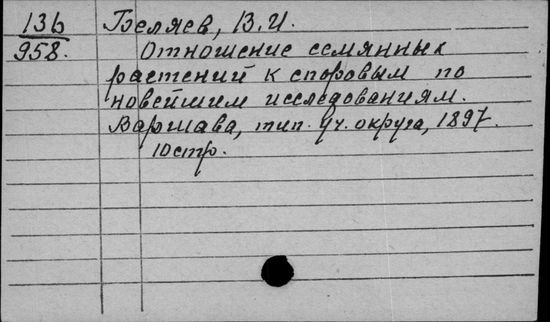 13б Беляев, В.И.
958. Отношение семянных
растений к споровым по
новейшим исследованиям.
Варшава, тип. уч. округа, 1897.
10стр.